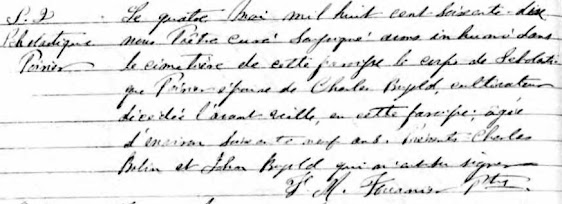 S. 2
Scholastique
Poirier
Le quatre mai mil huit cent soixante-dix
nous Prêtre curé Soussigné avons inhumé dans
le cimetière de cette paroisse le corps de Scholasti
que Poirier épouse de Charles Bujold, cultivateur
décédée l'avant veille, en cette paroisse, agée
d'environ soixante neuf ans. Présents Charles
Bolin et John Bujold qui n'ont su signer
M. Fournier Ptre